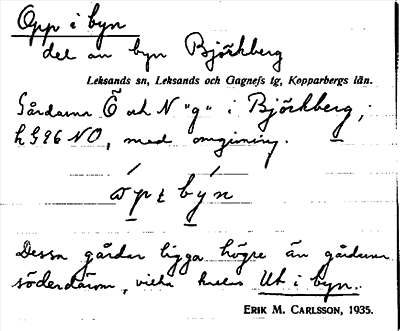 Opp i byn
del av byn Björkberg
Leksands sn, Leksands och Gagnefs tg, Kopparbergs län.
Gårdarna Ö och N "g" i Björkberg,
h 596 NO, med omgivning.
Dessa gårdar ligga högre än gårdarna
söderdärom, vilka kallas Ut i byn.
ERIK M. CARLSSON, 1935.